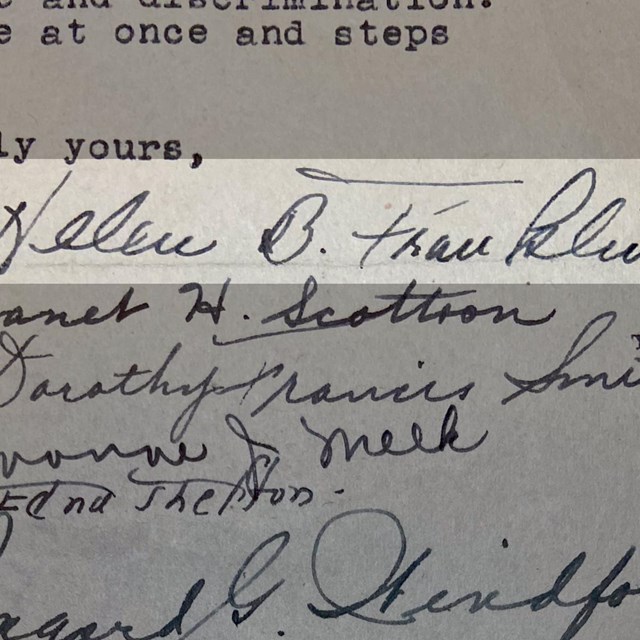 and discrimination.
e at once and steps
ly yours,
Helen B. Franklin
anet H. Scottron
Dorothy Francis Smi
vonne J. Meek
Edna Shelton
G.